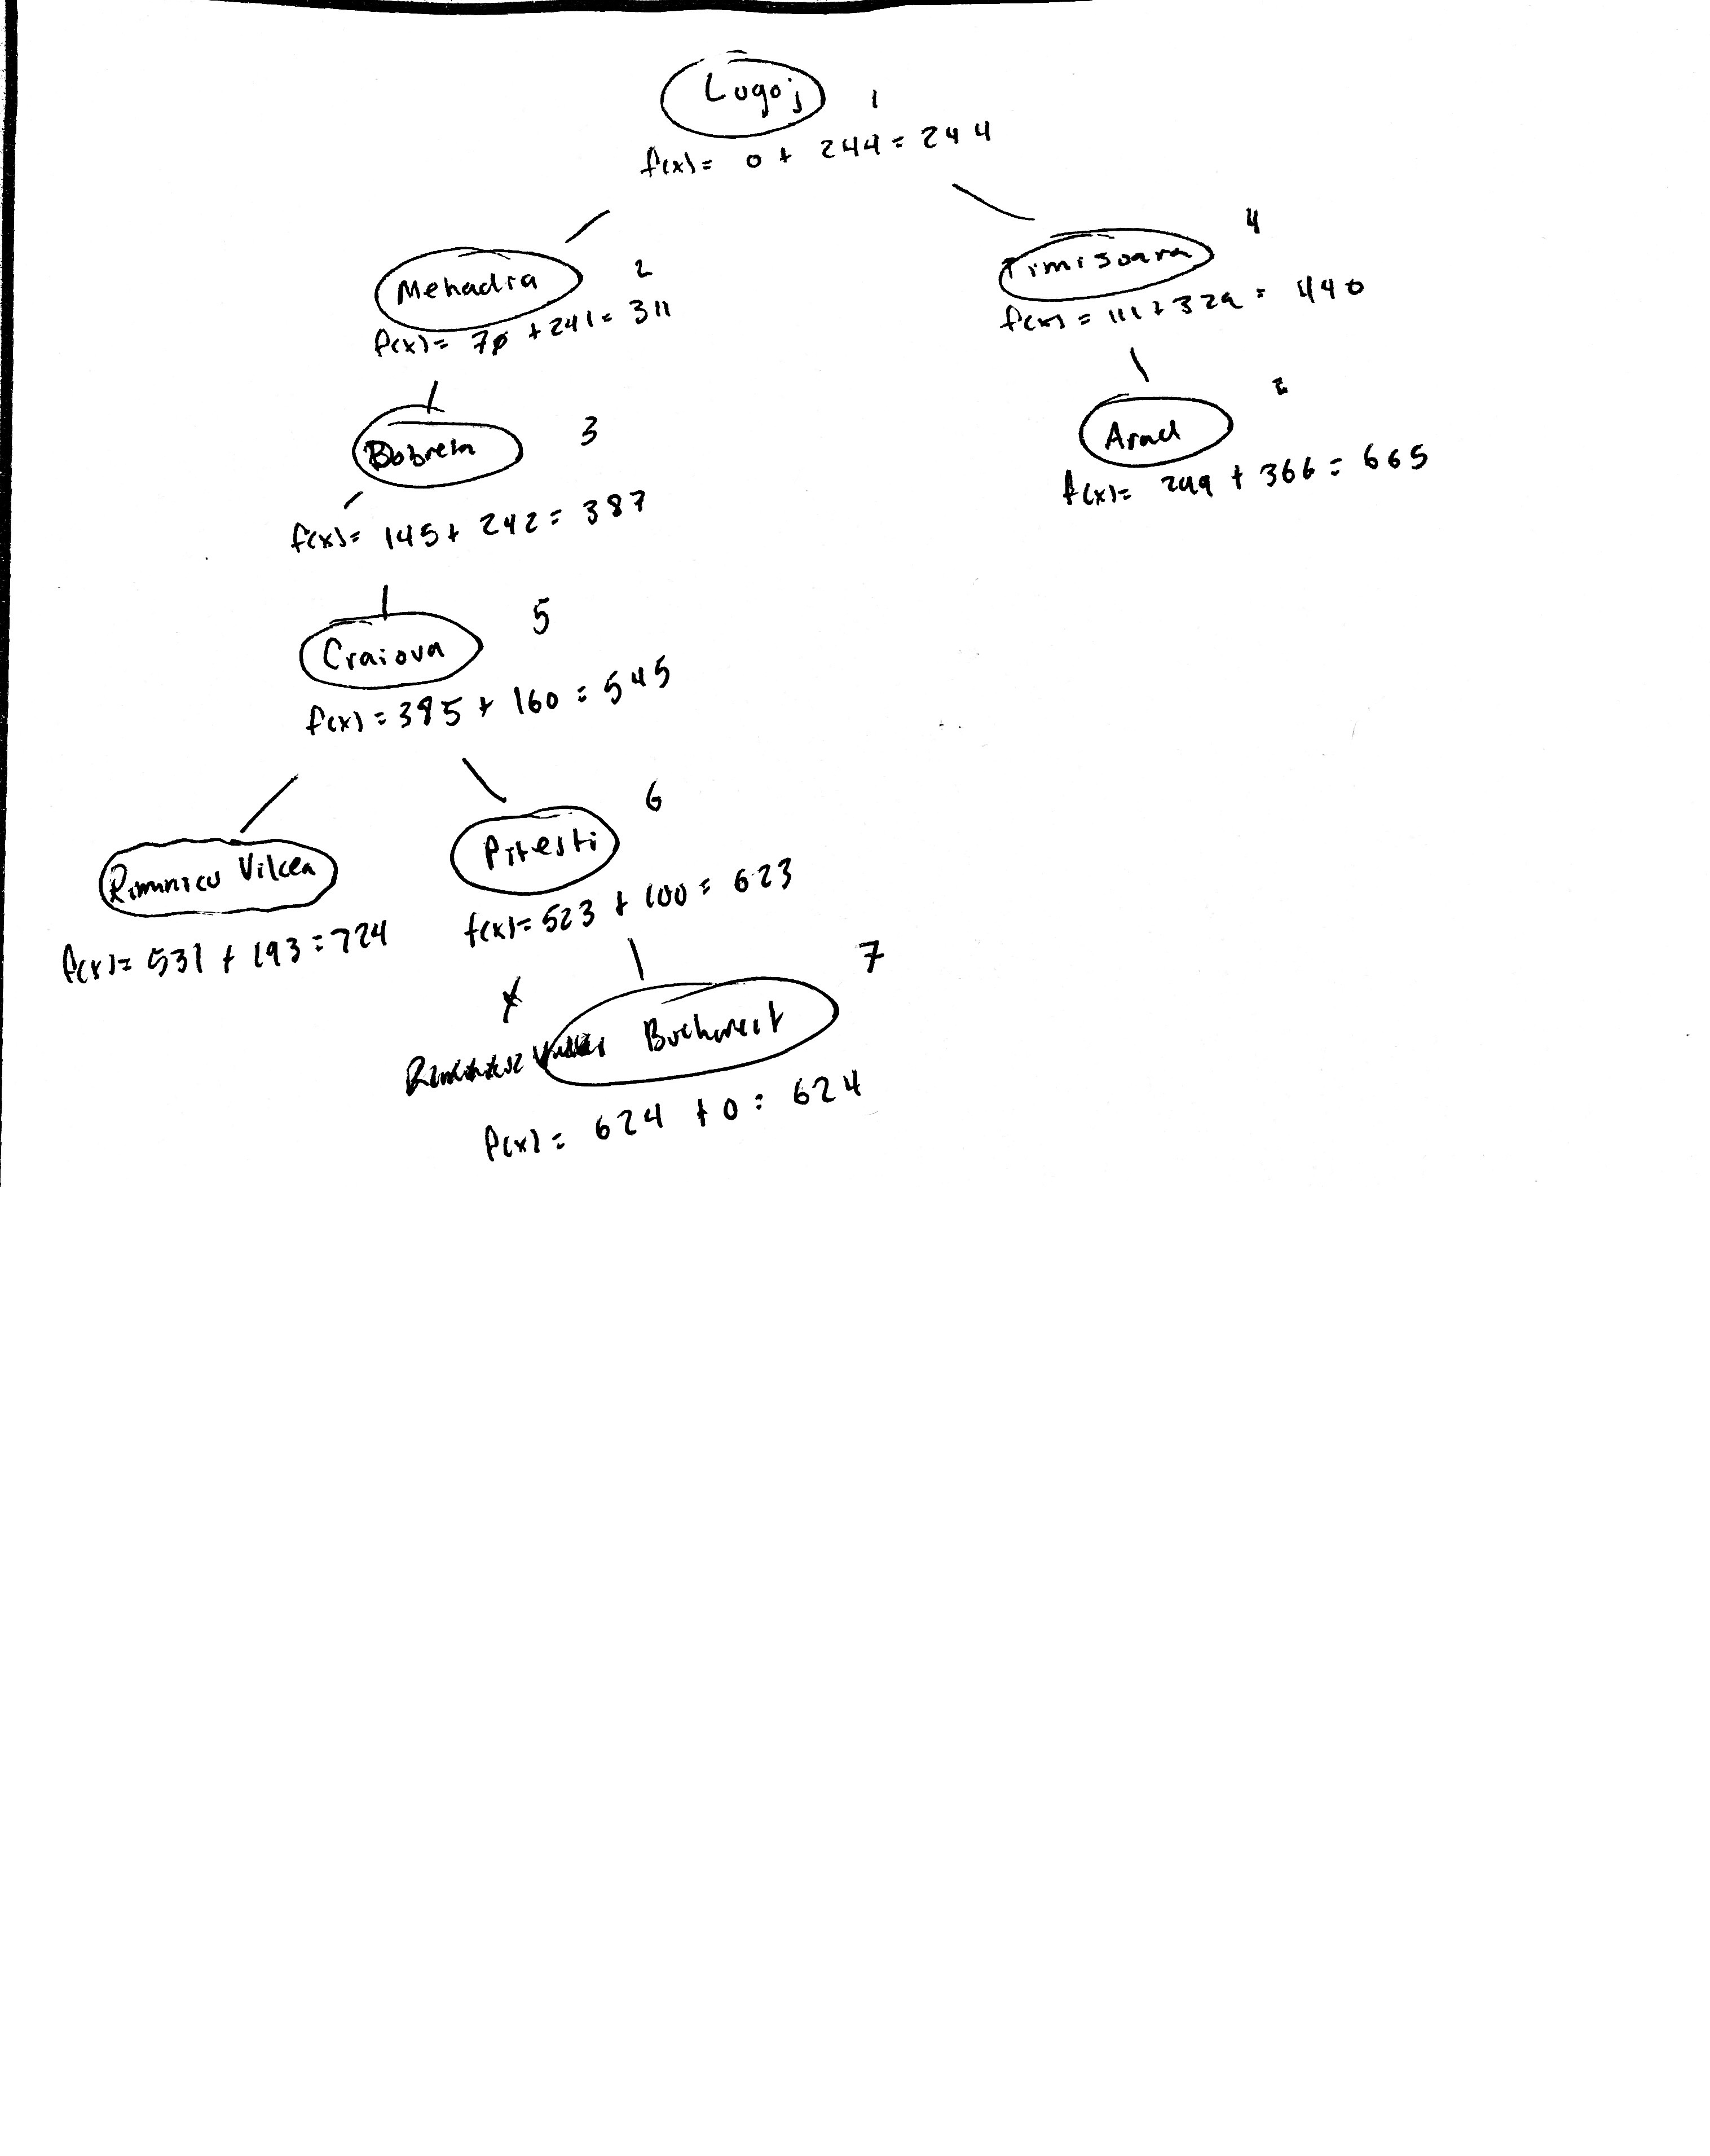 Lugoj 1
f(x) = 0 + 244 = 244
Mehadia 2
f(x) = 70 + 241 = 311
Timisoara 4
f(x) = 111 + 329 = 440
Bobreta 3
f(x) = 145 + 242 = 387
Arad
f(x) = 299 + 366 = 665
Craiova 5
f(x) = 385 + 160 = 545
Rimnicu Vilcea
f(x) = 531 + 193 = 724
Pitesti 6
f(x) = 523 + 100 = 623
Bucharest 7
f(x) = 624 + 0 = 624